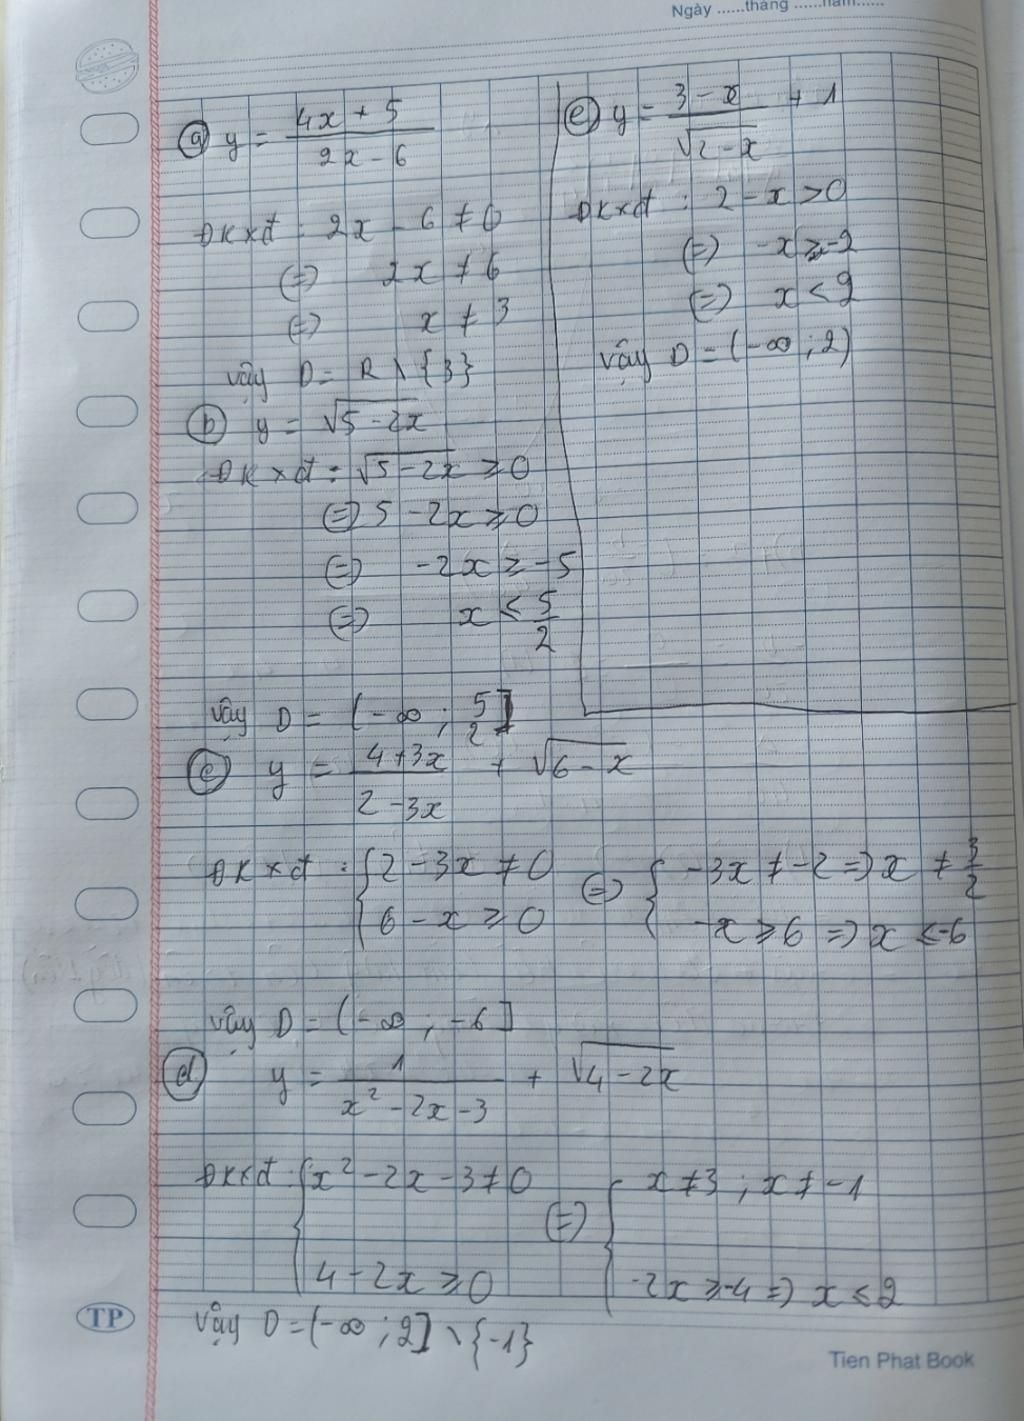 Ngày ......tháng ......năm......
ⓐ y = (4x + 5)/(2x - 6)
ĐKxđ : 2x - 6 ≠ 0
(=) 2x ≠ 6
(=) x ≠ 3
vậy D = R \ {3}
ⓑ y = √(5 - 2x)
ĐKxđ : √(5 - 2x) ≥ 0
(=) 5 - 2x ≥ 0
(=) -2x ≥ -5
(=) x ≤ 5/2
vậy D = (-∞ ; 5/2]
ⓒ y = (4+3x)/(2-3x) + √(6 - x)
ĐKxđ : { 2 - 3x ≠ 0 (=) { -3x ≠ -2 => x ≠ 3/2
6 - x ≥ 0 -x ≥ 6 => x ≤ -6
vậy D = (-∞ ; -6]
ⓓ y = 1/(x² - 2x - 3) + √(4 - 2x)
ĐKxđ : { x² - 2x - 3 ≠ 0 (=) { x ≠ 3 ; x ≠ -1
4 - 2x ≥ 0 -2x ≥ -4 => x ≤ 2
vậy D = (-∞ ; 2] \ {-1}
ⓔ y = (3 - x)/√(2 - x) + 1
ĐKxđ : 2 - x > 0
(=) -x > -2
(=) x < 2
vậy D = (-∞ ; 2)
TP
Tien Phat Book